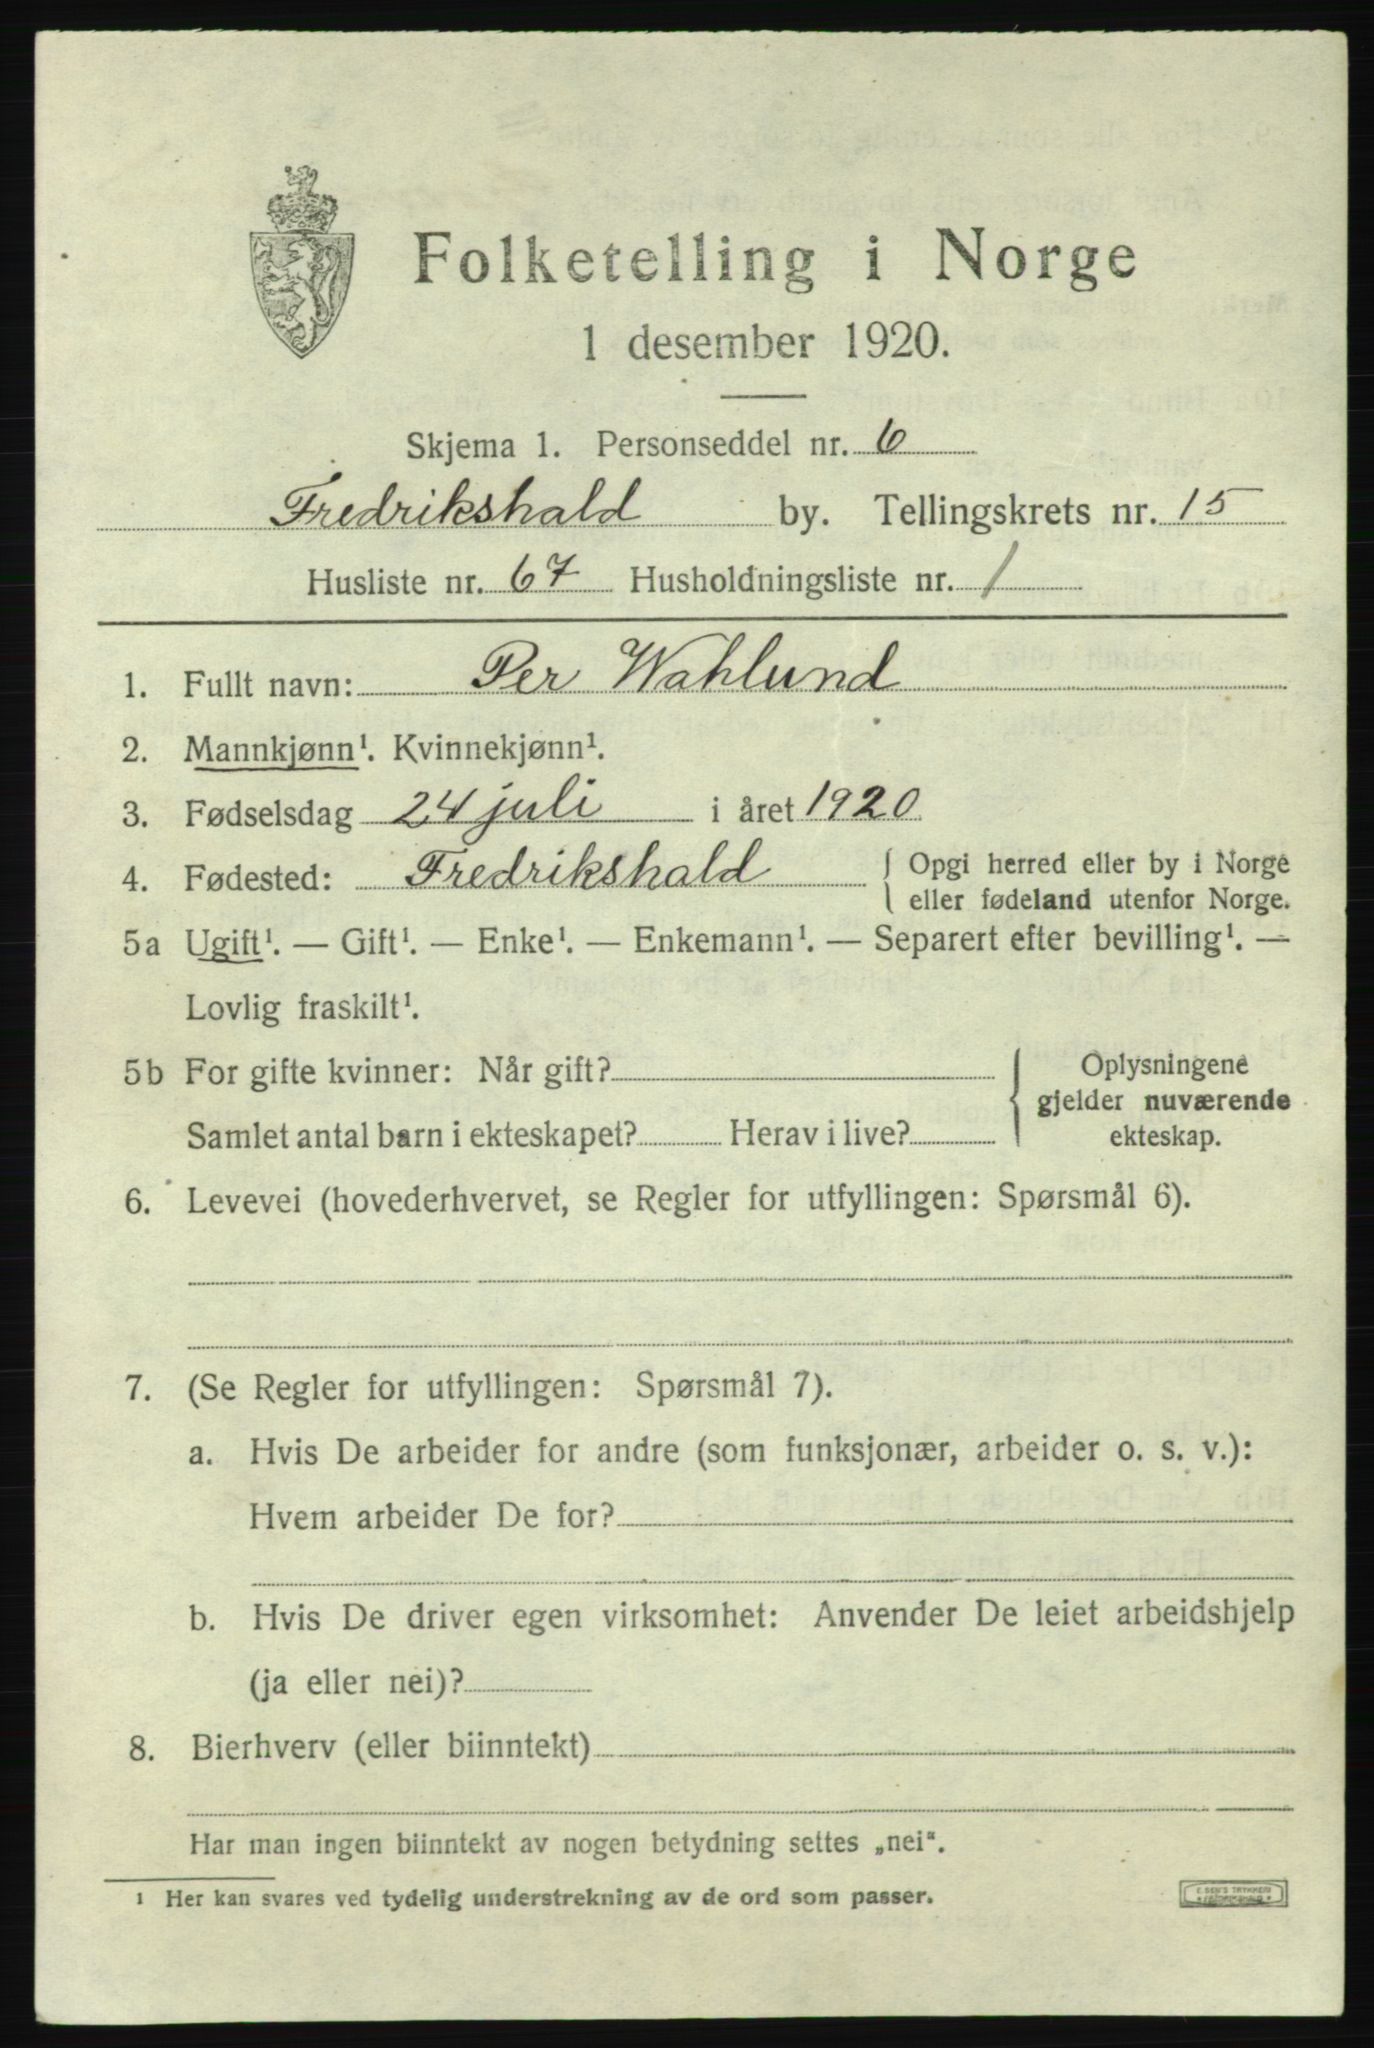 Folketelling i Norge
1 desember 1920.
Skjema 1. Personseddel nr. 6
Fredrikshald by. Tellingskrets nr. 15
Husliste nr. 67 Husholdningsliste nr. 1
1. Fullt navn: Per Wahlund
2. Mannkjønn¹. Kvinnekjønn¹.
3. Fødselsdag 24 juli i året 1920
4. Fødested: Fredrikshald { Opgi herred eller by i Norge
eller fødeland utenfor Norge.
5a Ugift¹. — Gift¹. — Enke¹. — Enkemann¹. — Separert efter bevilling¹. —
Lovlig fraskilt¹.
5b For gifte kvinner: Når gift? { Oplysningene
gjelder nuværende
Samlet antal barn i ekteskapet? Herav i live? ekteskap.
6. Levevei (hovederhvervet, se Regler for utfyllingen: Spørsmål 6).
7. (Se Regler for utfyllingen: Spørsmål 7).
a. Hvis De arbeider for andre (som funksjonær, arbeider o. s. v.):
Hvem arbeider De for?
b. Hvis De driver egen virksomhet: Anvender De leiet arbeidshjelp
(ja eller nei)?
8. Bierhverv (eller biinntekt)
Har man ingen biinntekt av nogen betydning settes „nei“.
¹ Her kan svares ved tydelig understrekning av de ord som passer.
TRYKKERI
FREDRIKSHALD